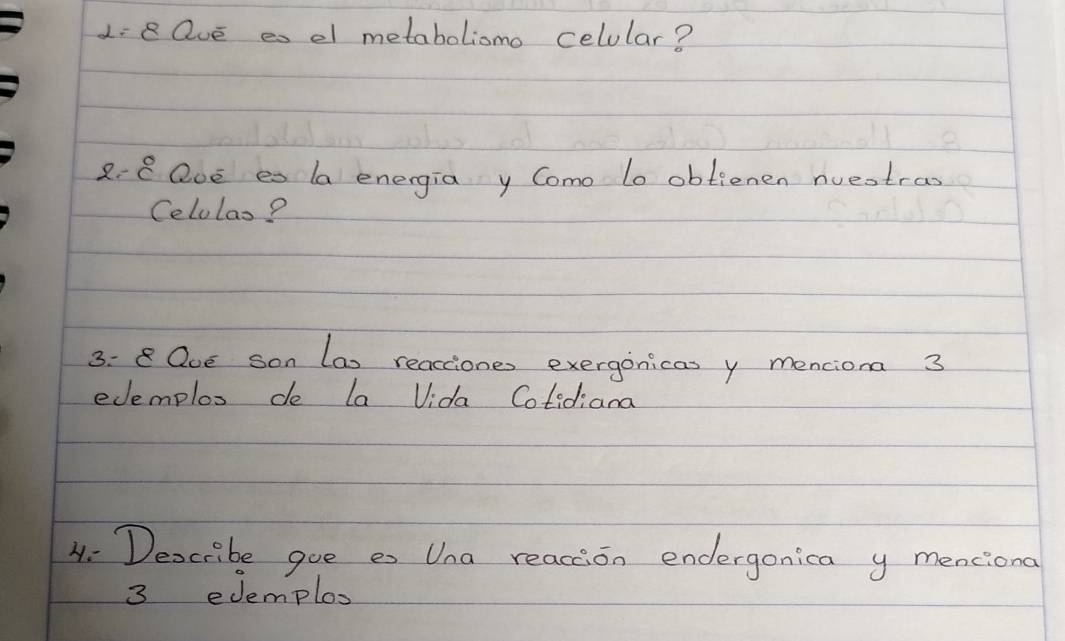 1.- ¿Qué es el metabolismo celular?
2.- ¿Qué es la energía y Como lo obtienen nuestras
Celulas?
3.- ¿Qué son las reacciones exergónicas y menciona 3
eJemplos de la Vida Cotidiana
4.- Describe que es Una reacción endergonica y menciona
3 eJemplos